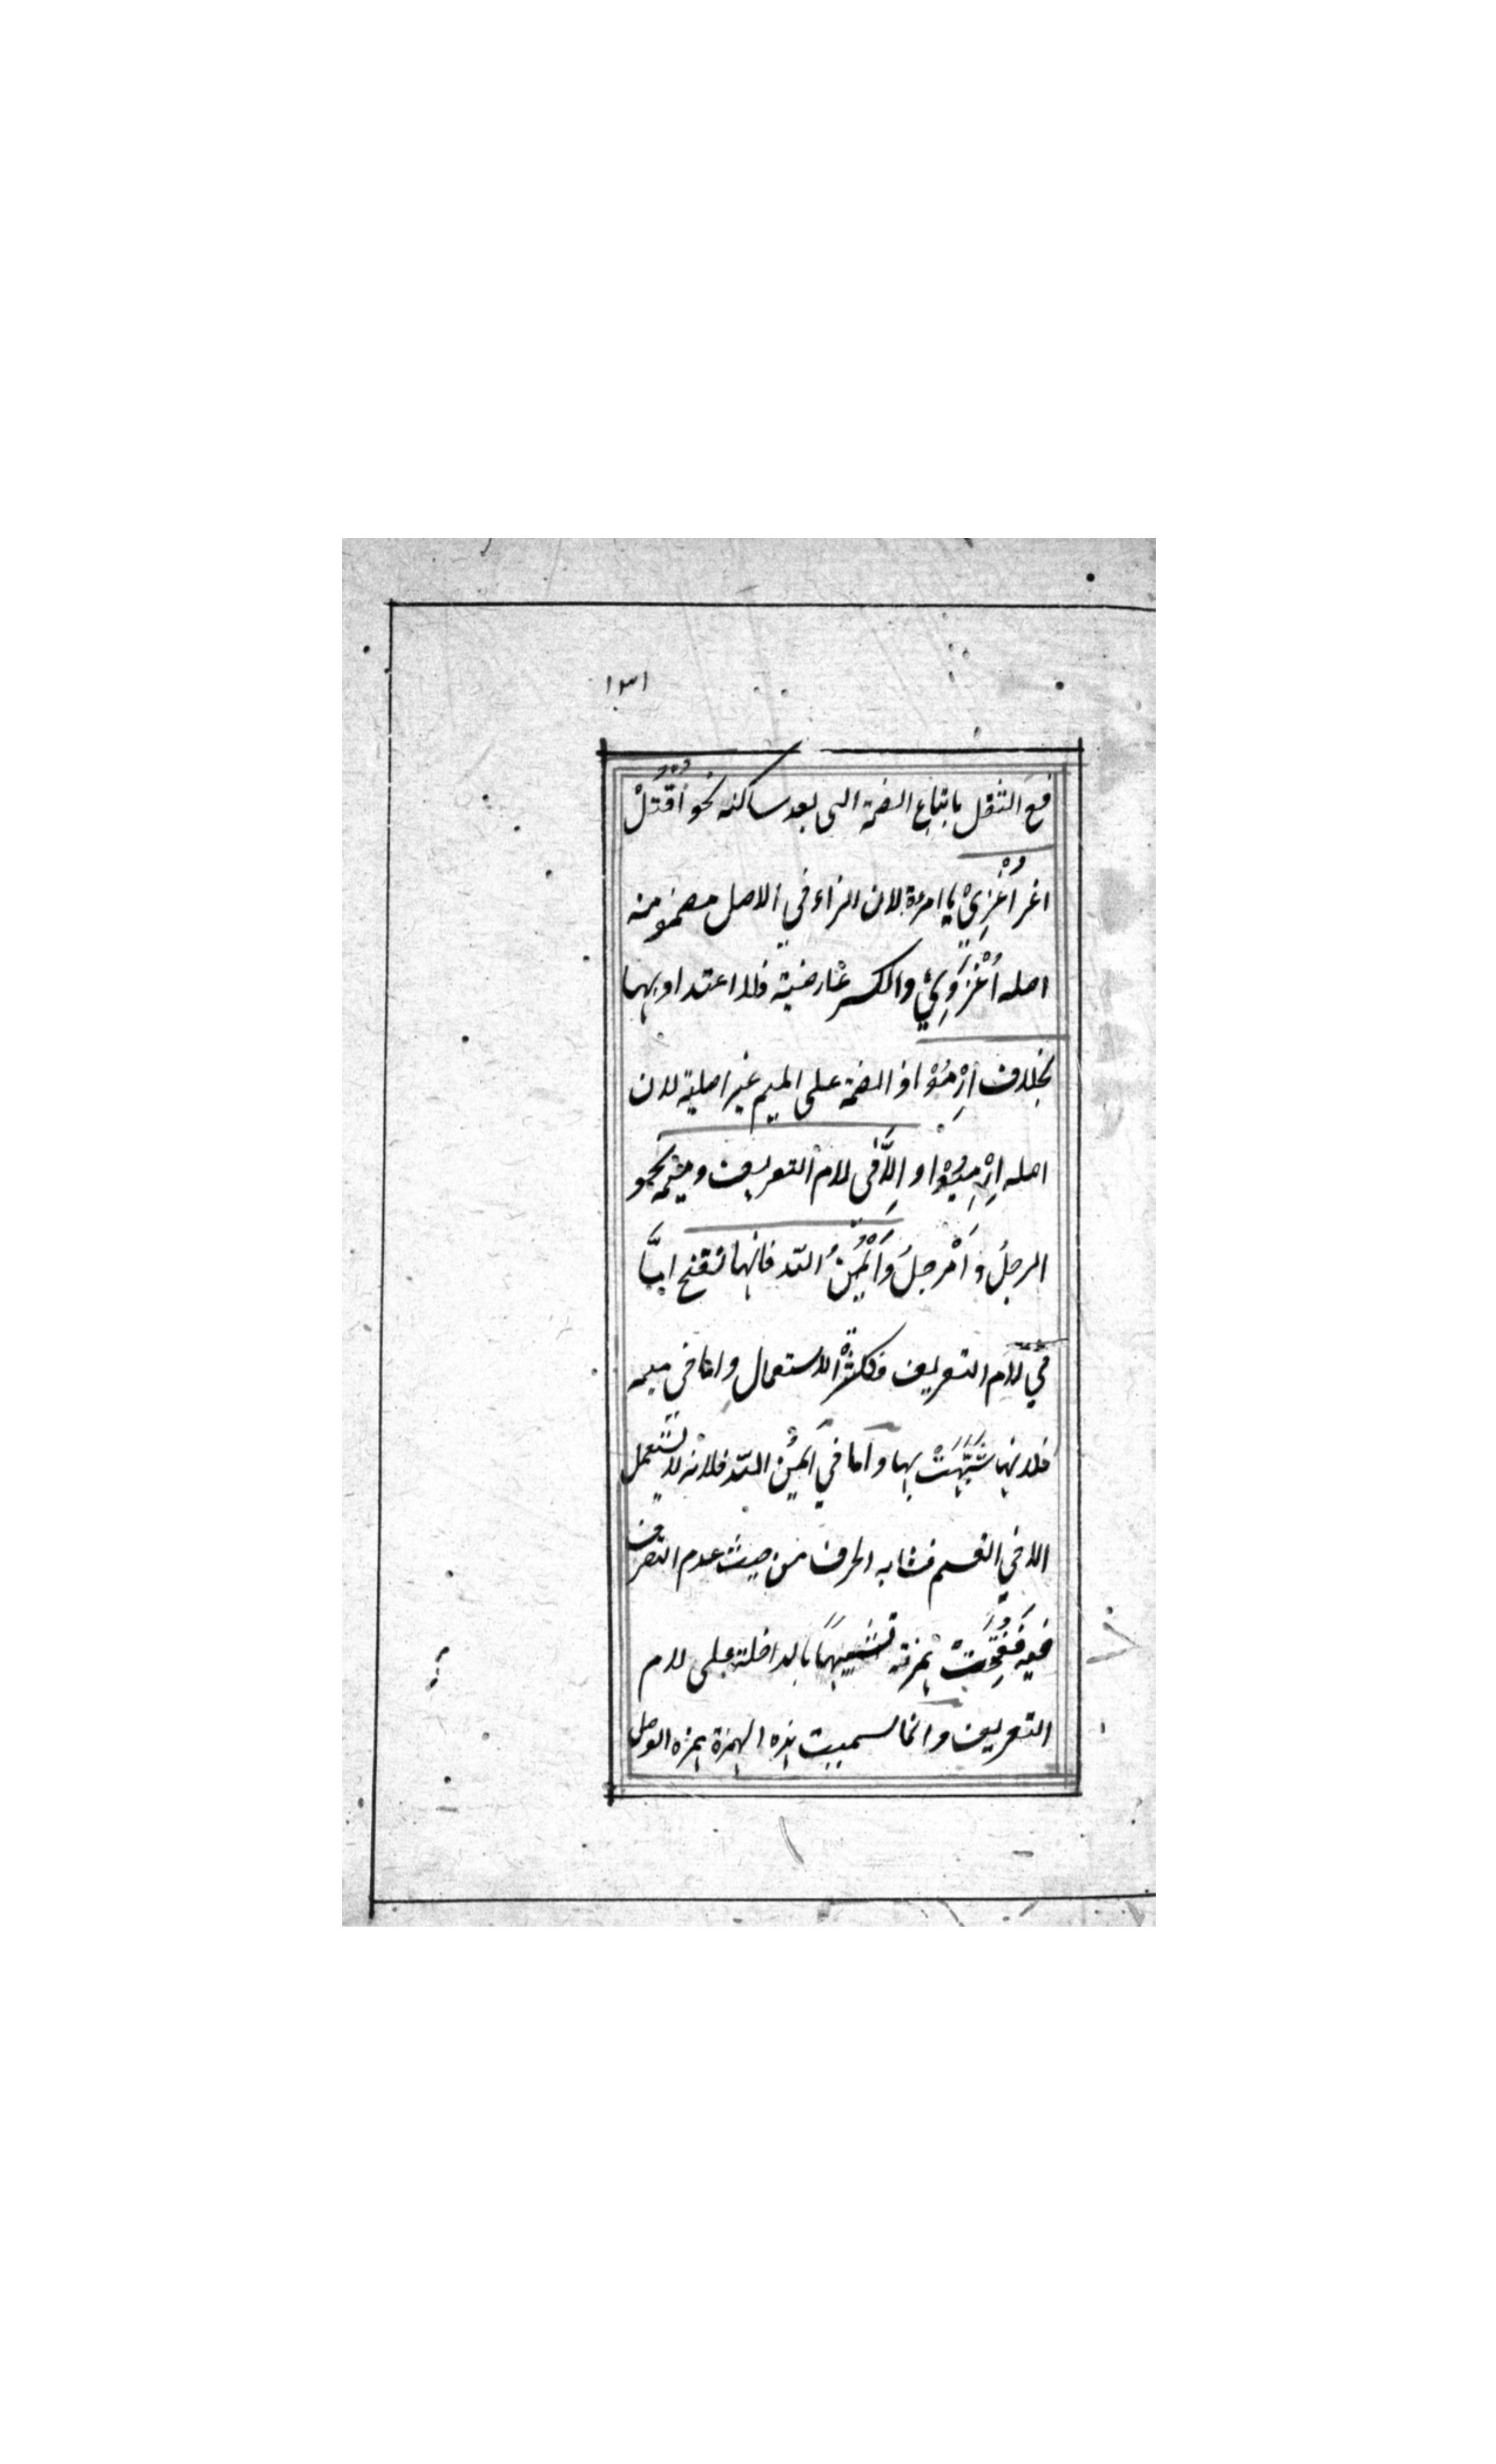 ١٣١
فع الثقل باتباع الضمة التى بعد ساكنه نحو اُقْتُلْ
اغز اُغْزِىْ يا امرءة لان الزاء في الاصل مضمومة
اصله اُغْزُوِيْ والكسر عارضية فلا اعتداد بها
بخلاف اِرْمُوْا اذ الضمة على الميم غير اصلية لان
اصله اِرْمِيُوْا و اِلَّا فى لام التعريف وميمه نحو
الرجلُ وَ اَمْرجلُ وَاَيْمُنُ اللّه فانها تفتح امّا
في لام التعريف فلكثرة الاستعمال واما فى ميمه
فلانها شُبِّهَتْ بها واما في ايمُن اللّه فلانه لا يستعمل
الا في القسم فشابه الحرف من حيث عدم التصرف
فيه فَفُتِحَتْ همزته تشبيهًا بالداخلة على لام
التعريف وانما سميت هذه الهمزة همزه الوصل